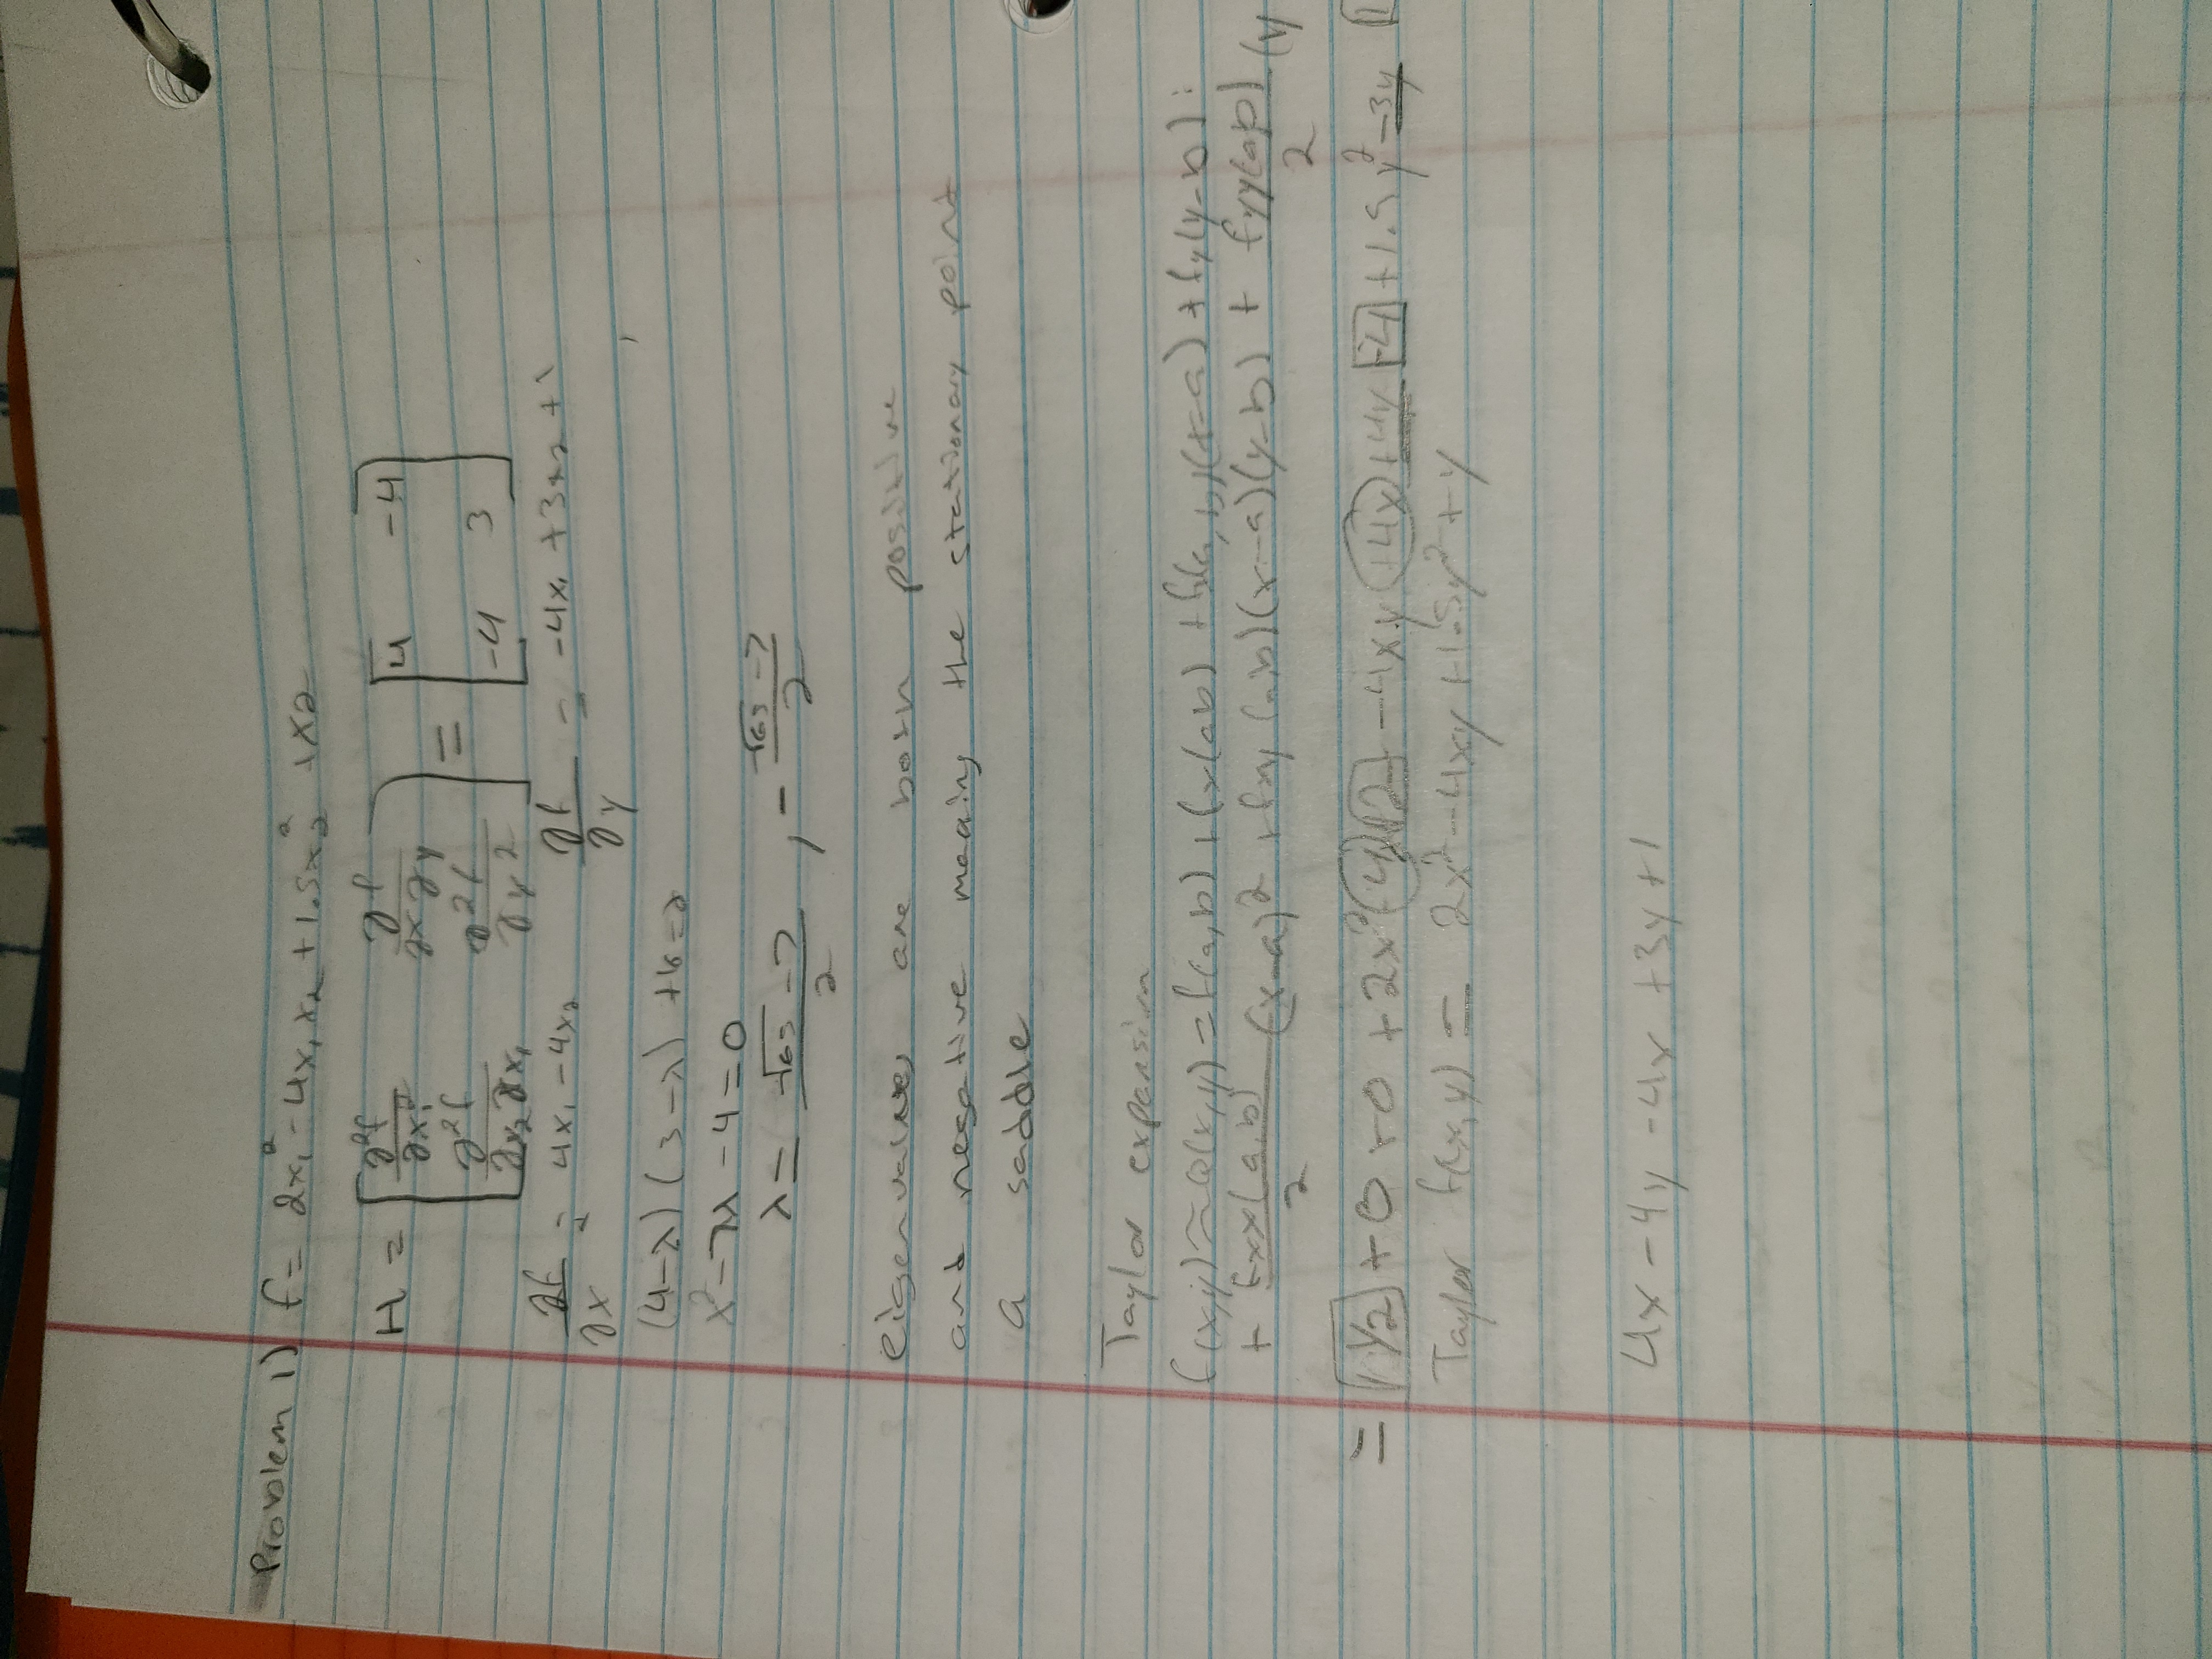 Problem 1) f = 2x₁² - 4x₁x₂ + 1.5x₂² + x2
H = [∂²f/∂x₁² ∂f/∂x∂y; ∂²f/∂x₂∂x₁ ∂²f/∂y²] = [4 -4; -4 3]
∂f/∂x = 4x₁ - 4x₂ ∂f/∂y = -4x₁ + 3x₂ + 1
(4-λ)(3-λ)
x² - 7λ - 4 = 0
λ = √65 - 7 / 2 , - √65 - 7 / 2
eigenvalues are both positive
and negative meaning the stationary point
a saddle
Taylor expansion
f(x,y) ≈ Q(x,y) = f(a,b) + fx(ab) + (a,b)(x-a) + fy(y-b):
+ fxx(a,b)/2 (x-a)² + fxy(a,b)(x-a)(y-b) + fyy(ab)/2 (y
= 1 1/2 + 0 + 0 + 2x² -4x +2 - 4xy +4x +4y -4 + 1.5y² -3y
Taylor f(x,y) = 2x² - 4xy + 1.5y² + y
4x - 4y - 4x + 3y + 1